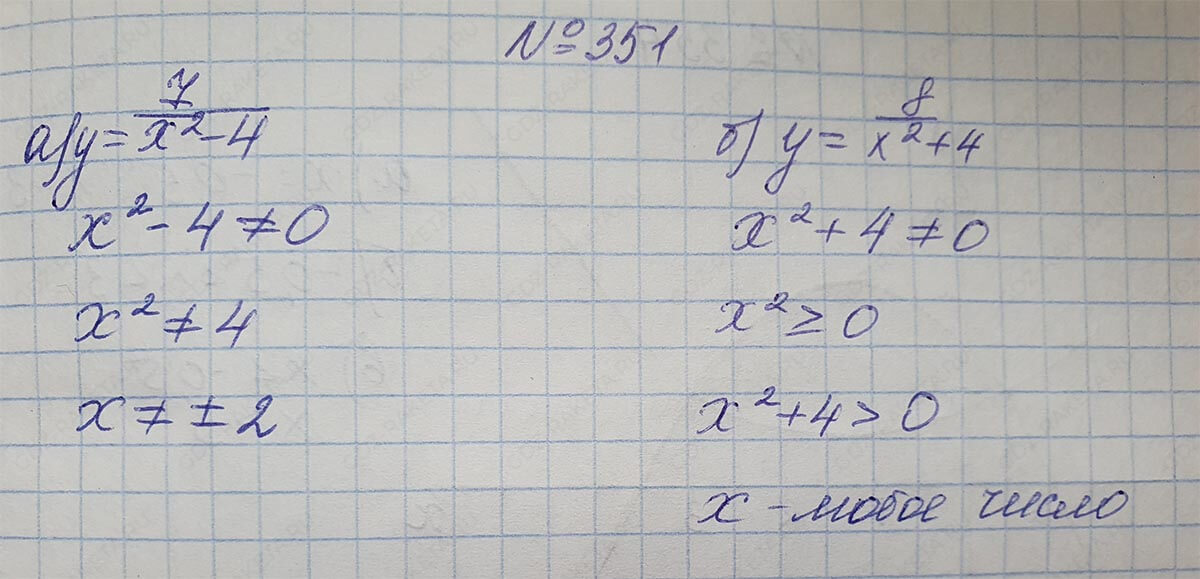 №351
а) y = 7/(x² - 4)
x² - 4 ≠ 0
x² ≠ 4
x ≠ ± 2
б) y = 8/(x² + 4)
x² + 4 ≠ 0
x² ≥ 0
x² + 4 > 0
x - любое число